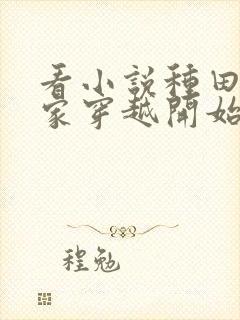 看小說種田
家穿越開始
程勉